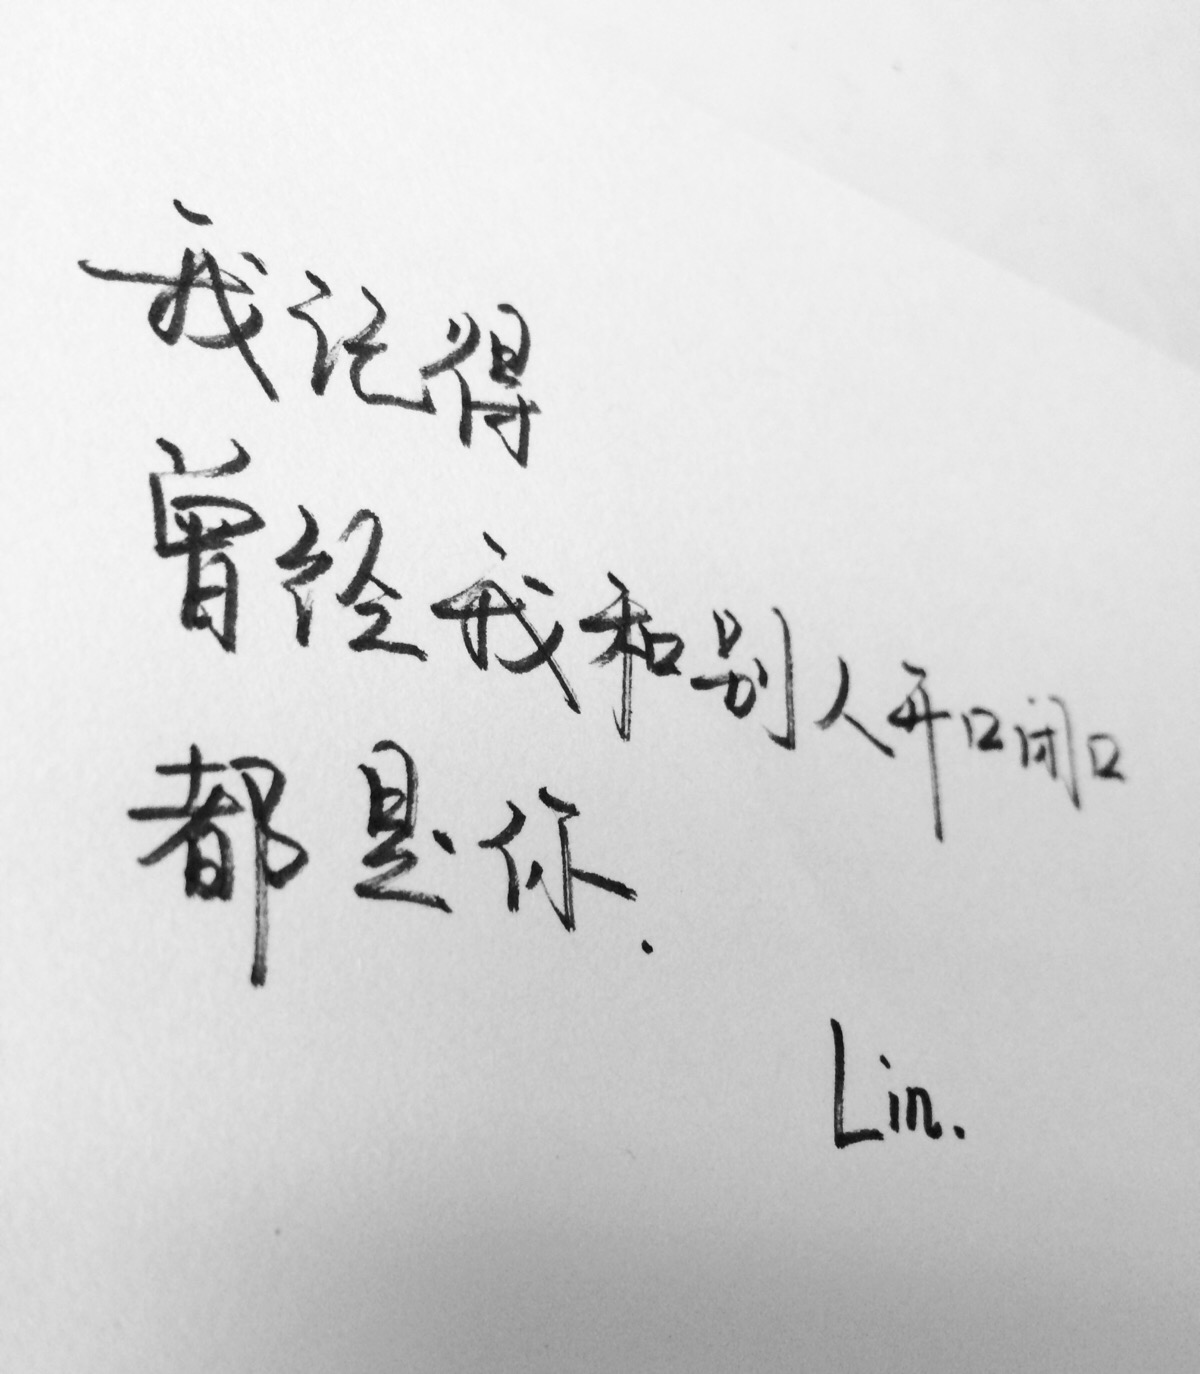 我记得
曾经我和别人开口闭口
都是你.
Lin.